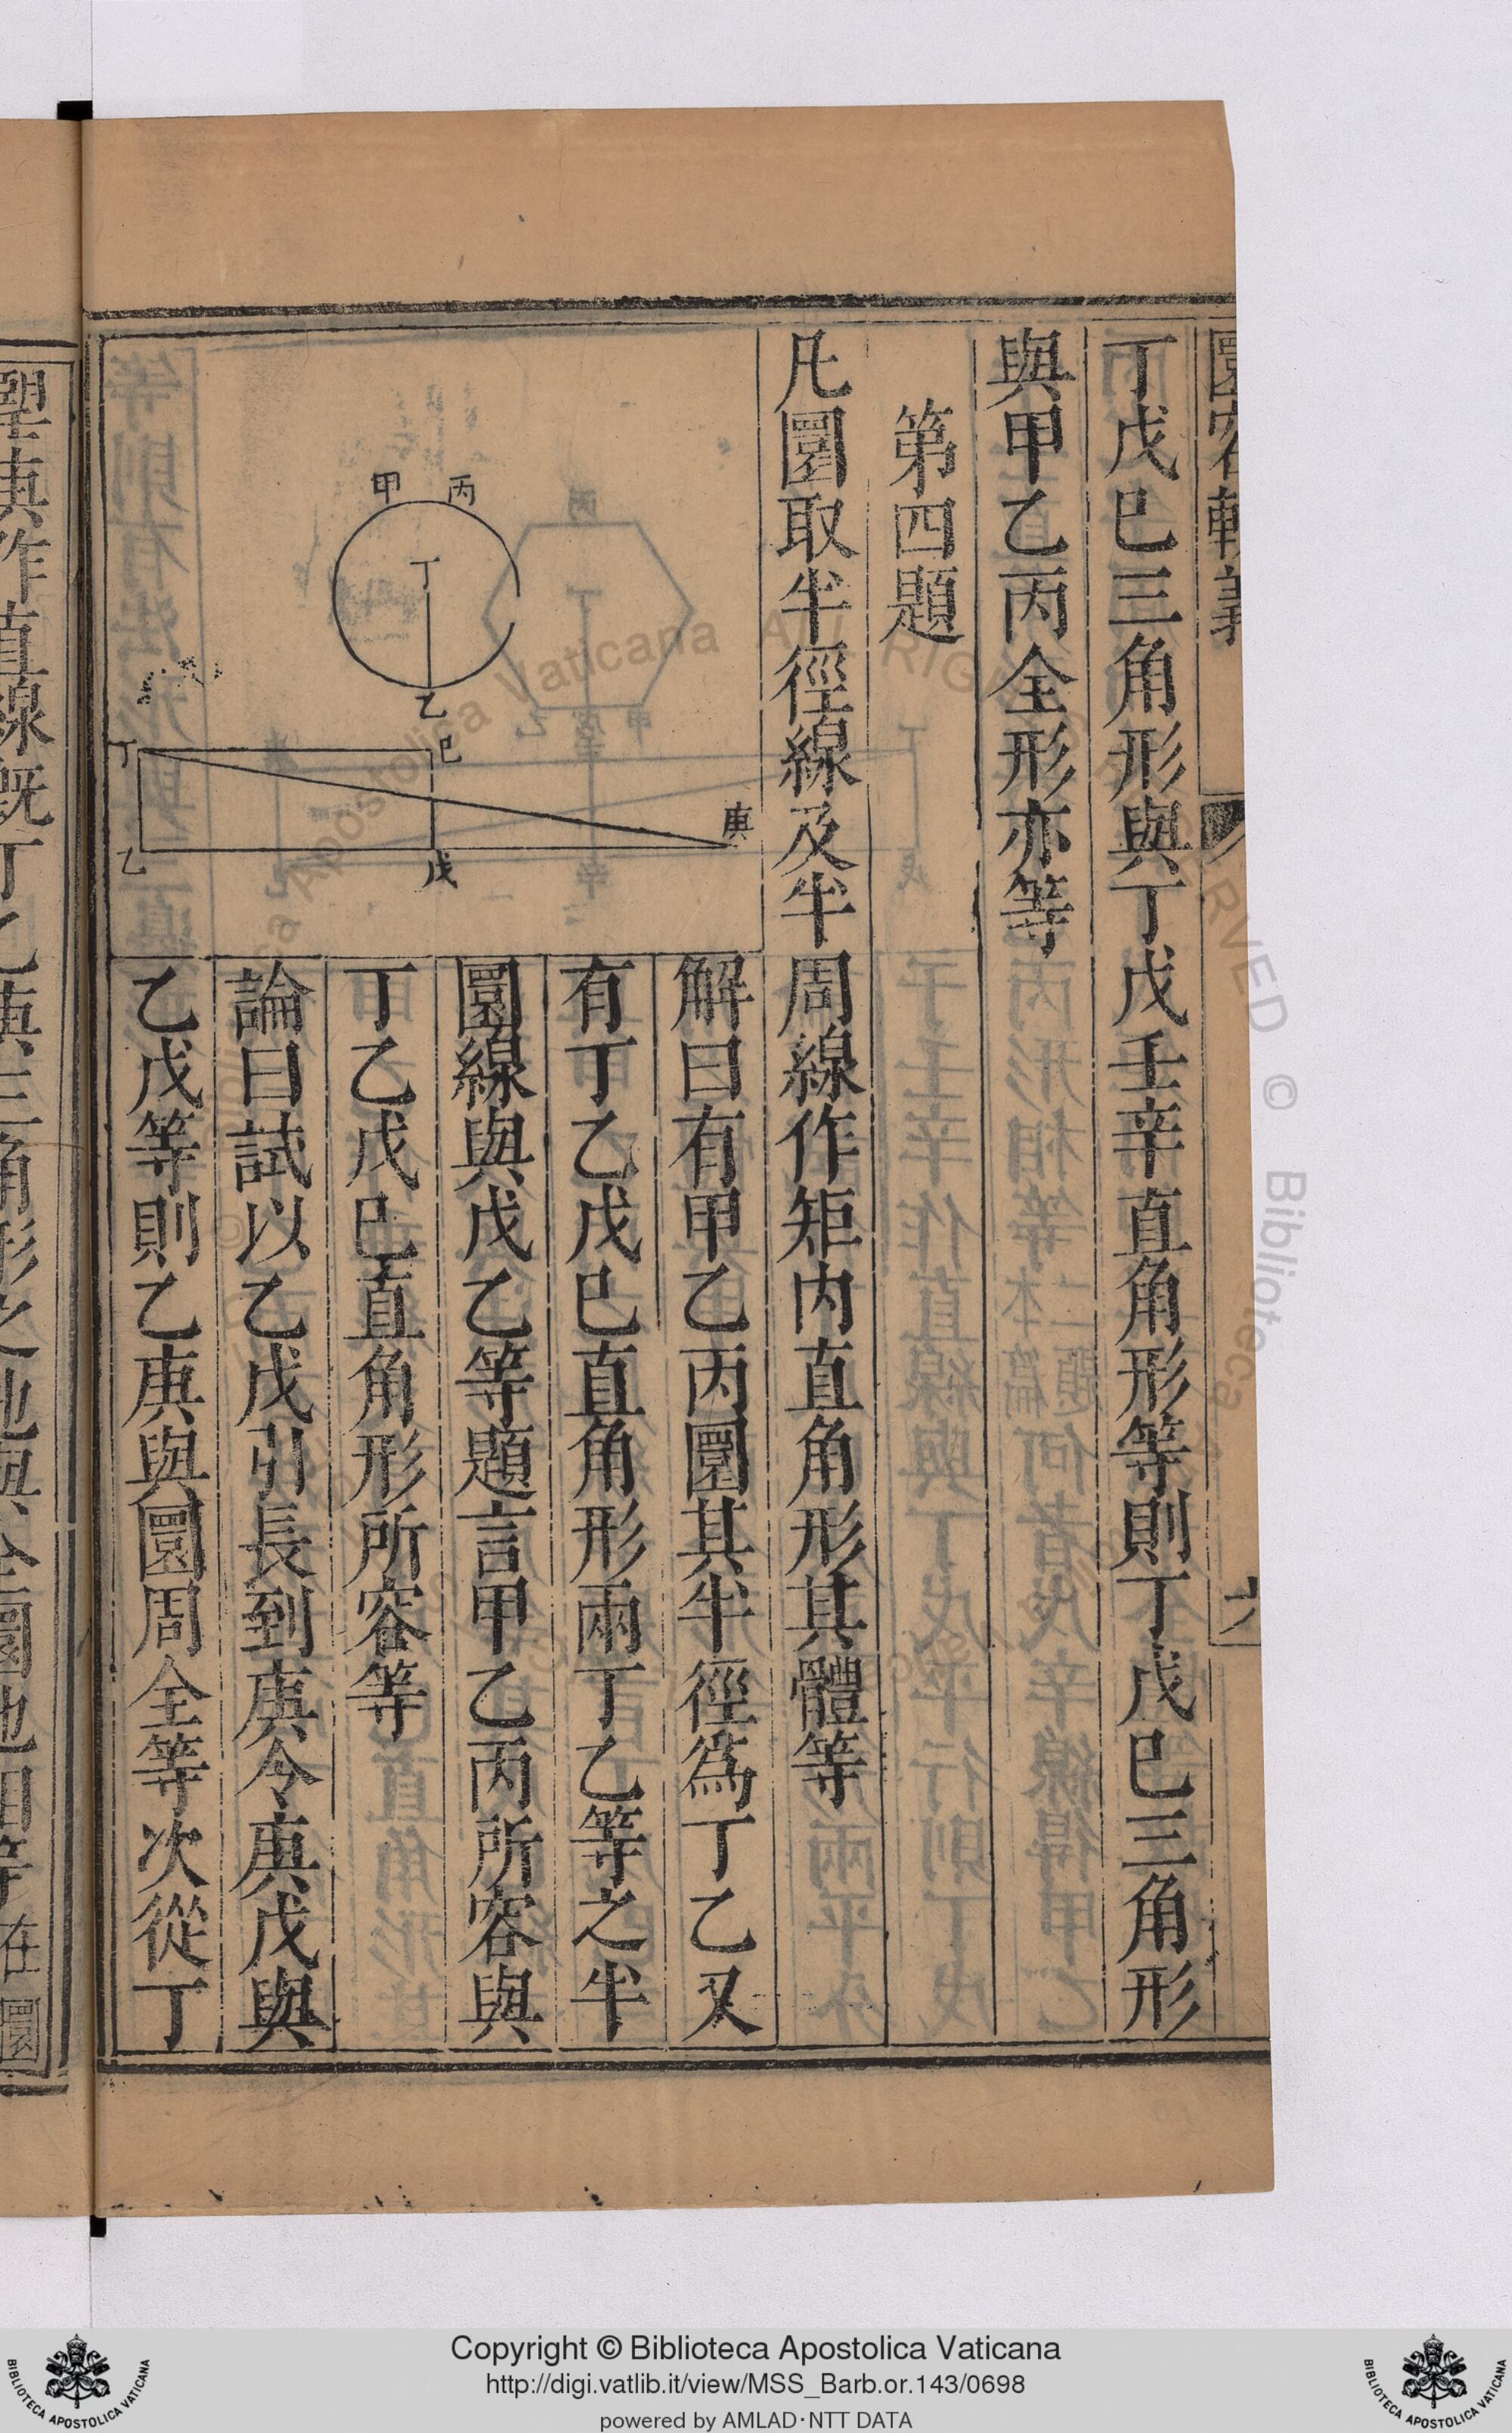 圜容較義
六
丁戊巳三角形與丁戊壬辛直角形等則丁戊巳三角形
與甲乙丙全形亦等
第四題
凡圜取半徑線及半周線作矩内直角形其體等
甲
丙
丁
乙
丁
巳
庚
乙
戊
解曰有甲乙丙圜其半徑爲丁乙又
有丁乙戊巳直角形兩丁乙等之半
圜線與戊乙等題言甲乙丙所容與
丁乙戊巳直角形所容等
論曰試以乙戊引長到庚令庚戊與
乙戊等則乙庚與圜周全等次從丁
Copyright © Biblioteca Apostolica Vaticana
http://digi.vatlib.it/view/MSS_Barb.or.143/0698
powered by AMLAD·NTT DATA
BIBLIOTECA APOSTOLICA VATICANA
BIBLIOTECA APOSTOLICA VATICANA